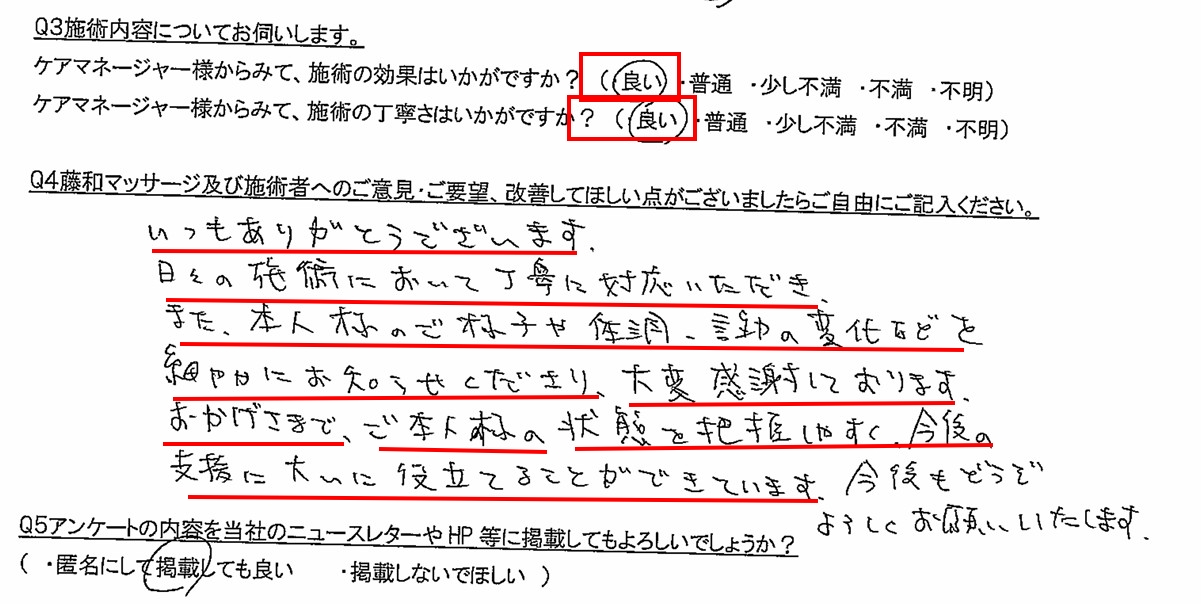 Q3施術内容についてお伺いします。
ケアマネージャー様からみて、施術の効果はいかがですか？（・良い・普通・少し不満・不満・不明）
ケアマネージャー様からみて、施術の丁寧さはいかがですか？（・良い・普通・少し不満・不満・不明）
Q4藤和マッサージ及び施術者へのご意見・ご要望、改善してほしい点がございましたらご自由にご記入ください。
いつもありがとうございます.
日々の施術において丁寧に対応いただき、
また、本人様のご様子や体調、言動の変化などを
細やかにお知らせくださり、大変感謝しております.
おかげさまで、ご本人様の状態を把握しやすく、今後の
支援に大いに役立てることができています、今後もどうぞ
よろしくお願いいたします.
Q5アンケートの内容を当社のニュースレターやHP等に掲載してもよろしいでしょうか？
（・匿名にして掲載しても良い　・掲載しないでほしい）